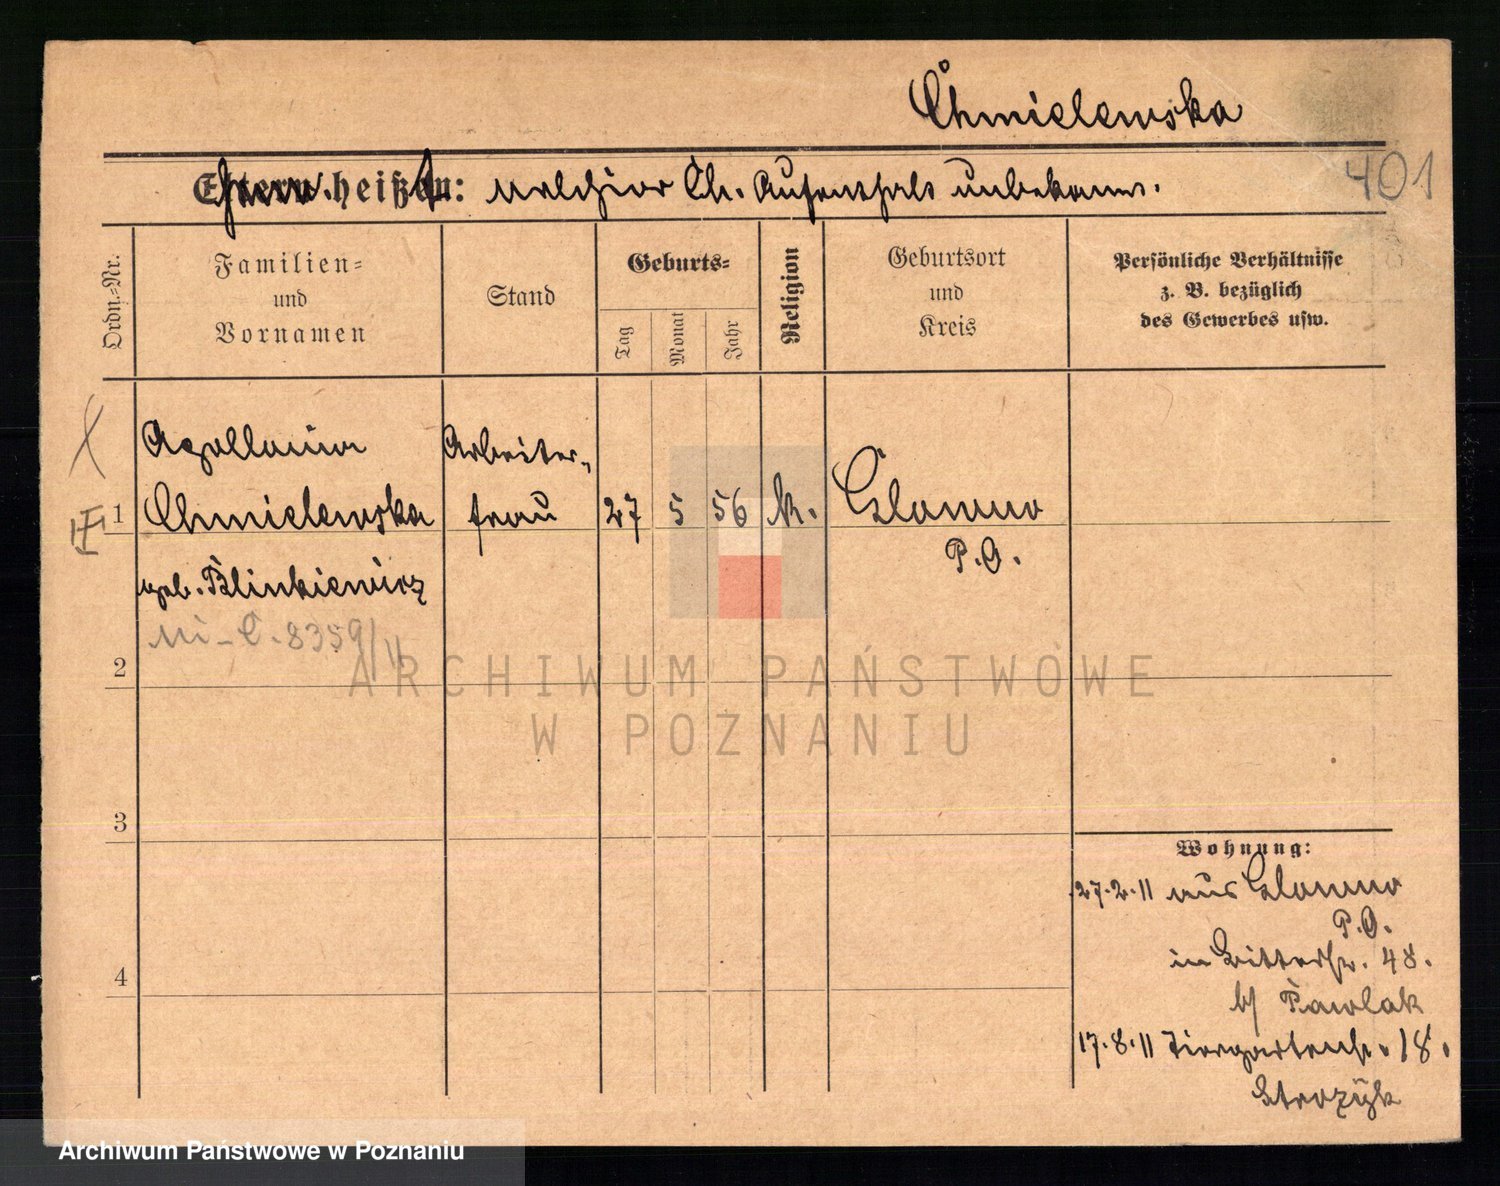 Chmielewska
401
Eltern heißen: Melchior Ch. Aufenthalt unbekannt.
Ordn.-Nr.
Familien-
und
Vornamen
Stand
Geburts-
Tag
Monat
Jahr
Religion
Geburtsort
und
Kreis
Persönliche Verhältnisse
z. B. bezüglich
des Gewerbes usw.
Apollonia Arbeiter-
1 Chmielewska frau 27 5 56 k. Glowno
P.O.
geb. Blinkiewicz
C. 8359/11
2
3
4
Wohnung:
27.2.11 aus Glowno
P.O.
in Ritterstr. 48.
b/ Pawlak
17.8.11 Tiergartenstr. 18.
Strozyk
ARCHIWUM PAŃSTWOWE
W POZNANIU
Archiwum Państwowe w Poznaniu